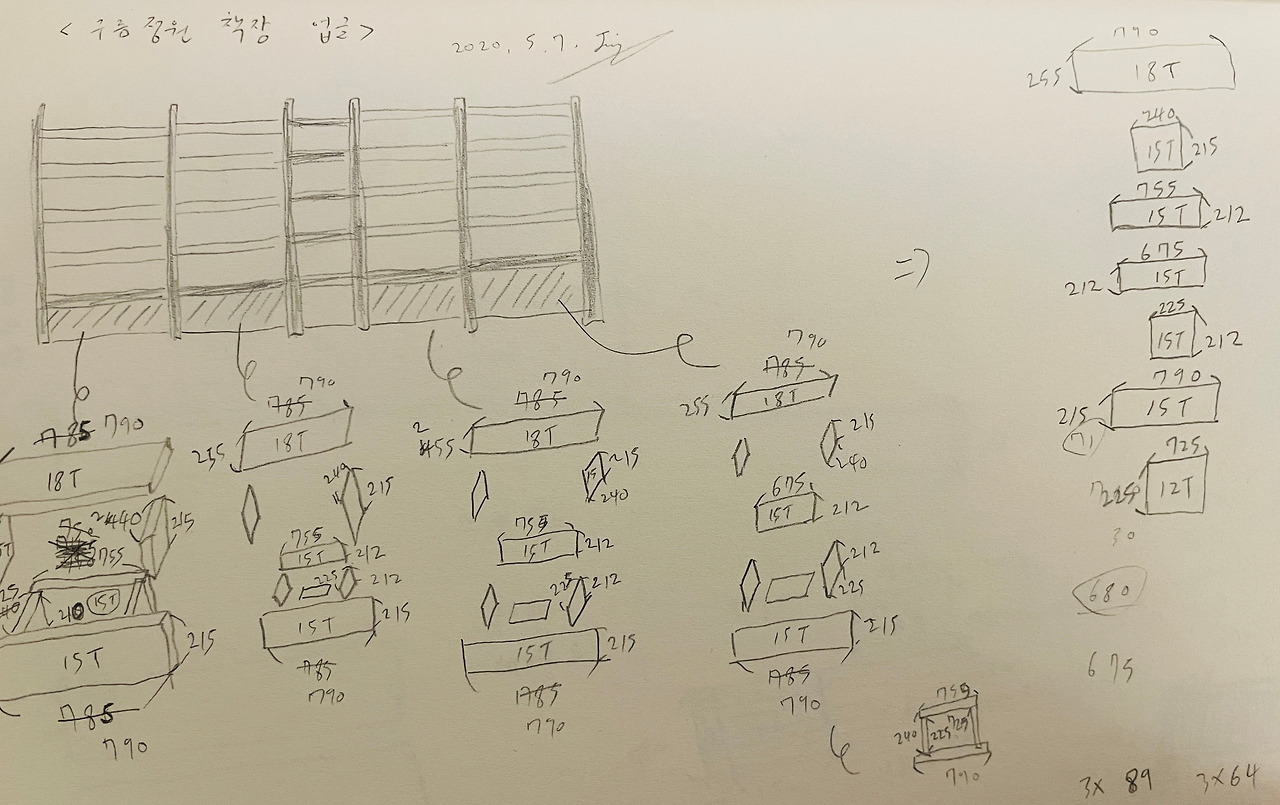 < 구름정원 책장 업글 >
2020. 5. 7. Jinj
790
255 18T
240
15T 215
755
15T 212
675
212 15T
225
15T 212
790
215 15T
71
725
225 12T
30
680
675
3x 89 3x64
785 790
18T
240 215
755
210 15T
15T 215
785
790
790
785
235 18T
240 215
755
15T 212
225 212
15T 215
785
790
790
785
255 18T
15 215
240
755
15T 212
225 212
15T 215
785
790
790
785
255 18T
215
240
675
15T 212
212
225
15T 215
785
790
755
240 225 725
790